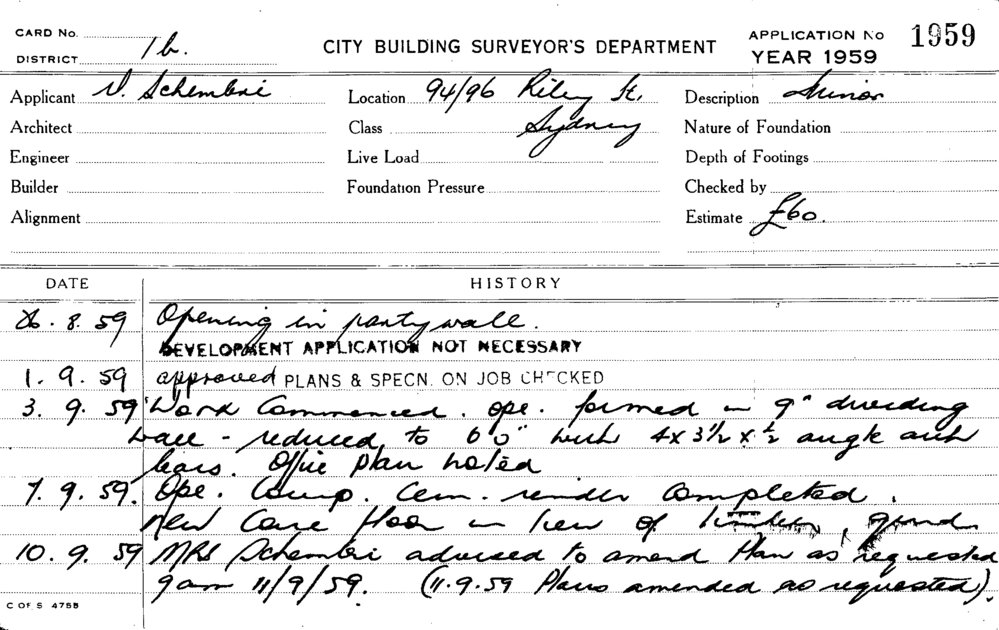 CARD No.
DISTRICT 1b.
CITY BUILDING SURVEYOR'S DEPARTMENT
APPLICATION No 1959
YEAR 1959
Applicant V. Schembri Location 94/96 Riley St. Description Minor
Architect Class Sydney Nature of Foundation
Engineer Live Load Depth of Footings
Builder Foundation Pressure Checked by
Alignment Estimate £60.
DATE HISTORY
8. 59 Opening in party wall.
DEVELOPMENT APPLICATION NOT NECESSARY
1. 9. 59 approved PLANS & SPECN. ON JOB CHECKED
3. 9. 59 Work Commenced. ope. formed in 9" dividing
wall - reduced to 6'0" with 4 x 3½ x ½ angle arch
bars. Office plan noted
7. 9. 59. Ope. Comp. Cem. render completed.
New Conc floor in lieu of timber, ground
10. 9. 59 MRS Schembri advised to amend Plan as requested
9am 11/9/59. (11.9.59 Plans amended as requested).
C OF S 4758